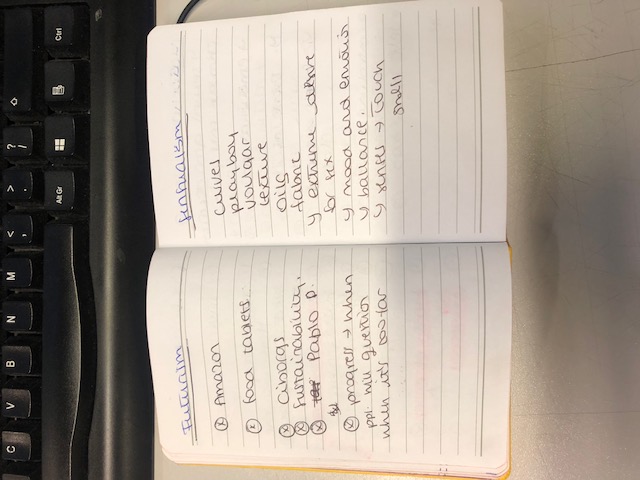 Futuraism
ⓧ Amazon
ⓧ Food tablets
ⓧ Cibor̶gs
ⓧ Sustainability.
ⓧ Pablo P.
ⓧ progress → when
ppl will question
when it's too far
Sentualism
curves
playboy
voulgar
texture
oils
fabric
↳ extreme desire
for sex
↳ mood and emotion
↳ ballance.
↳ senses → Touch
smell
C
V
B
N
M
< ,
> .
? /
Alt Gr
Ctrl